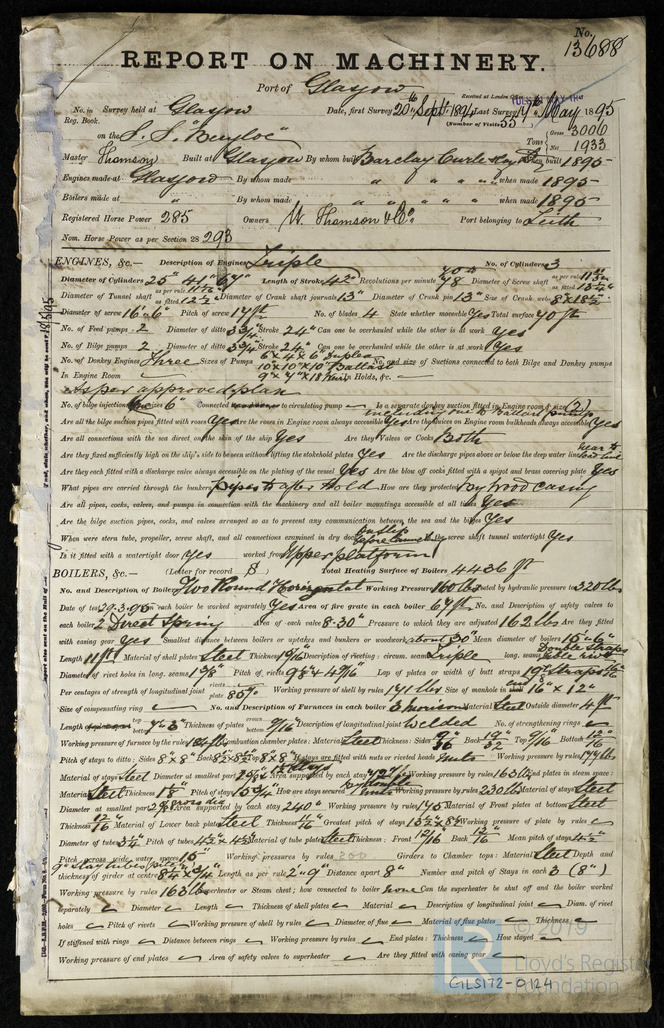 No. 13688
REPORT ON MACHINERY.
Port of Glasgow
Received at London Office
No. in Survey held at Glasgow Date, first Survey 20th Sept 1894 Last Survey 14th May 1895
Reg. Book. (Number of Visits 55)
on the S. S. "Benyloe" Tons Gross 3006 Net 1933
Master Thomson Built at Glasgow By whom built Barclay Curle & Coy Ld When built 1895
Engines made at Glasgow By whom made " " " " when made 1895
Boilers made at " By whom made " " " when made 1895
Registered Horse Power 285 Owners W. Thomson & Co. Port belonging to Leith
Nom. Horse Power as per Section 28 293
ENGINES, &c.— Description of Engines Triple No. of Cylinders 3
Diameter of Cylinders 25" 41" 67" Length of Stroke 42" Revolutions per minute 78 Diameter of Screw shaft as per rule as fitted
Diameter of Tunnel shaft as per rule as fitted 12 1/2" Diameter of Crank shaft journals 13" Diameter of Crank pin 13" Size of Crank webs 8 x 18 1/2"
Diameter of screw 16' 6" Pitch of screw 17 ft No. of blades 4 State whether moveable Yes Total surface 70 ft
No. of Feed pumps 2 Diameter of ditto 3 3/4" Stroke 24" Can one be overhauled while the other is at work Yes
No. of Bilge pumps 2 Diameter of ditto 3 3/4" Stroke 24" Can one be overhauled while the other is at work Yes
No. of Donkey Engines Three Sizes of Pumps 6 x 4 x 6" Duplex 10 x 10 x 10" Ballast No. and size of Suctions connected to both Bilge and Donkey pumps
In Engine Room 9 x 7 x 18 In Holds, &c. —
As per approved plan
No. of bilge injections sizes 6" Connected to circulating pump Is a separate donkey suction fitted in Engine room & size (2)
including one to ballast pump
Are all the bilge suction pipes fitted with roses Yes Are the roses in Engine room always accessible Yes Are the sluices on Engine room bulkheads always accessible Yes
Are all connections with the sea direct on the skin of the ship Yes Are they Valves or Cocks Both
Are they fixed sufficiently high on the ship's side to be seen without lifting the stokehold plates Yes Are the discharge pipes above or below the deep water line near to load line
Are they each fitted with a discharge valve always accessible on the plating of the vessel Yes Are the blow off cocks fitted with a spigot and brass covering plate Yes
What pipes are carried through the bunkers pipes to after hold How are they protected by wood casing
Are all pipes, cocks, valves, and pumps in connection with the machinery and all boiler mountings accessible at all times Yes
Are the bilge suction pipes, cocks, and valves arranged so as to prevent any communication between the sea and the bilges Yes
When were stern tube, propeller, screw shaft, and all connections examined in dry dock on slip before launch Is the screw shaft tunnel watertight Yes
Is it fitted with a watertight door Yes worked from Upper platform
BOILERS, &c.— (Letter for record S) Total Heating Surface of Boilers 4436 ft
No. and Description of Boilers Two Round Horizontal Working Pressure 160 lbs Tested by hydraulic pressure to 320 lbs
Date of test 29.3.95 Can each boiler be worked separately Yes Area of fire grate in each boiler 67 ft No. and Description of safety valves to
each boiler 2 Direct Spring Area of each valve 8.30" Pressure to which they are adjusted 162 lbs Are they fitted
with easing gear Yes Smallest distance between boilers or uptakes and bunkers or woodwork about 30" Mean diameter of boilers 15' 6"
Length 11 ft Material of shell plates Steel Thickness 1 9/16 Description of riveting: circum. seams Triple long. seams Double Straps
Diameter of rivet holes in long. seams 1 3/8" Pitch of rivets Lap of plates or width of butt straps
Per centages of strength of longitudinal joint rivets plate 85.7% Working pressure of shell by rules 171 lbs Size of manhole in shell 16" x 12"
Size of compensating ring No. and Description of Furnaces in each boiler 3 Morison Material Steel Outside diameter 4 ft
Length of plain part top bottom Thickness of plates crown bottom 9/16" Description of longitudinal joint Welded No. of strengthening rings
Working pressure of furnace by the rules Combustion chamber plates: Material Steel Thickness: Sides 19/32 Back 19/32 Top 9/16 Bottom
Pitch of stays to ditto: Sides 8" x 8" Back Top 8" x 8" If stays are fitted with nuts or riveted heads Nuts Working pressure by rules
Material of stays Steel Diameter at smallest part Area supported by each stay Working pressure by rules 163 lbs End plates in steam space:
Material Steel Thickness 1 1/8" Pitch of stays How are stays secured Working pressure by rules 230 lbs Material of stays Steel
Diameter at smallest part Area supported by each stay 240" Working pressure by rules 175 Material of Front plates at bottom Steel
Thickness Material of Lower back plate Steel Thickness 11/16" Greatest pitch of stays Working pressure of plate by rules
Diameter of tubes 3 1/4" Pitch of tubes 4 1/2" x 4 1/2" Material of tube plates Steel Thickness: Front Back Mean pitch of stays
Pitch across wide water spaces 15" Working pressures by rules Girders to Chamber tops: Material Steel Depth and
thickness of girder at centre Length as per rule 2' 9" Distance apart 8" Number and pitch of Stays in each 3 (8")
Working pressure by rules 163 lbs Superheater or Steam chest; how connected to boiler None Can the superheater be shut off and the boiler worked
separately Diameter Length Thickness of shell plates Material Description of longitudinal joint Diam. of rivet
holes Pitch of rivets Working pressure of shell by rules Diameter of flue Material of flue plates Thickness
If stiffened with rings Distance between rings Working pressure by rules End plates: Thickness How stayed
Working pressure of end plates Area of safety valves to superheater Are they fitted with easing gear
© 2019
Lloyd's Register
Foundation
GLS172-0124